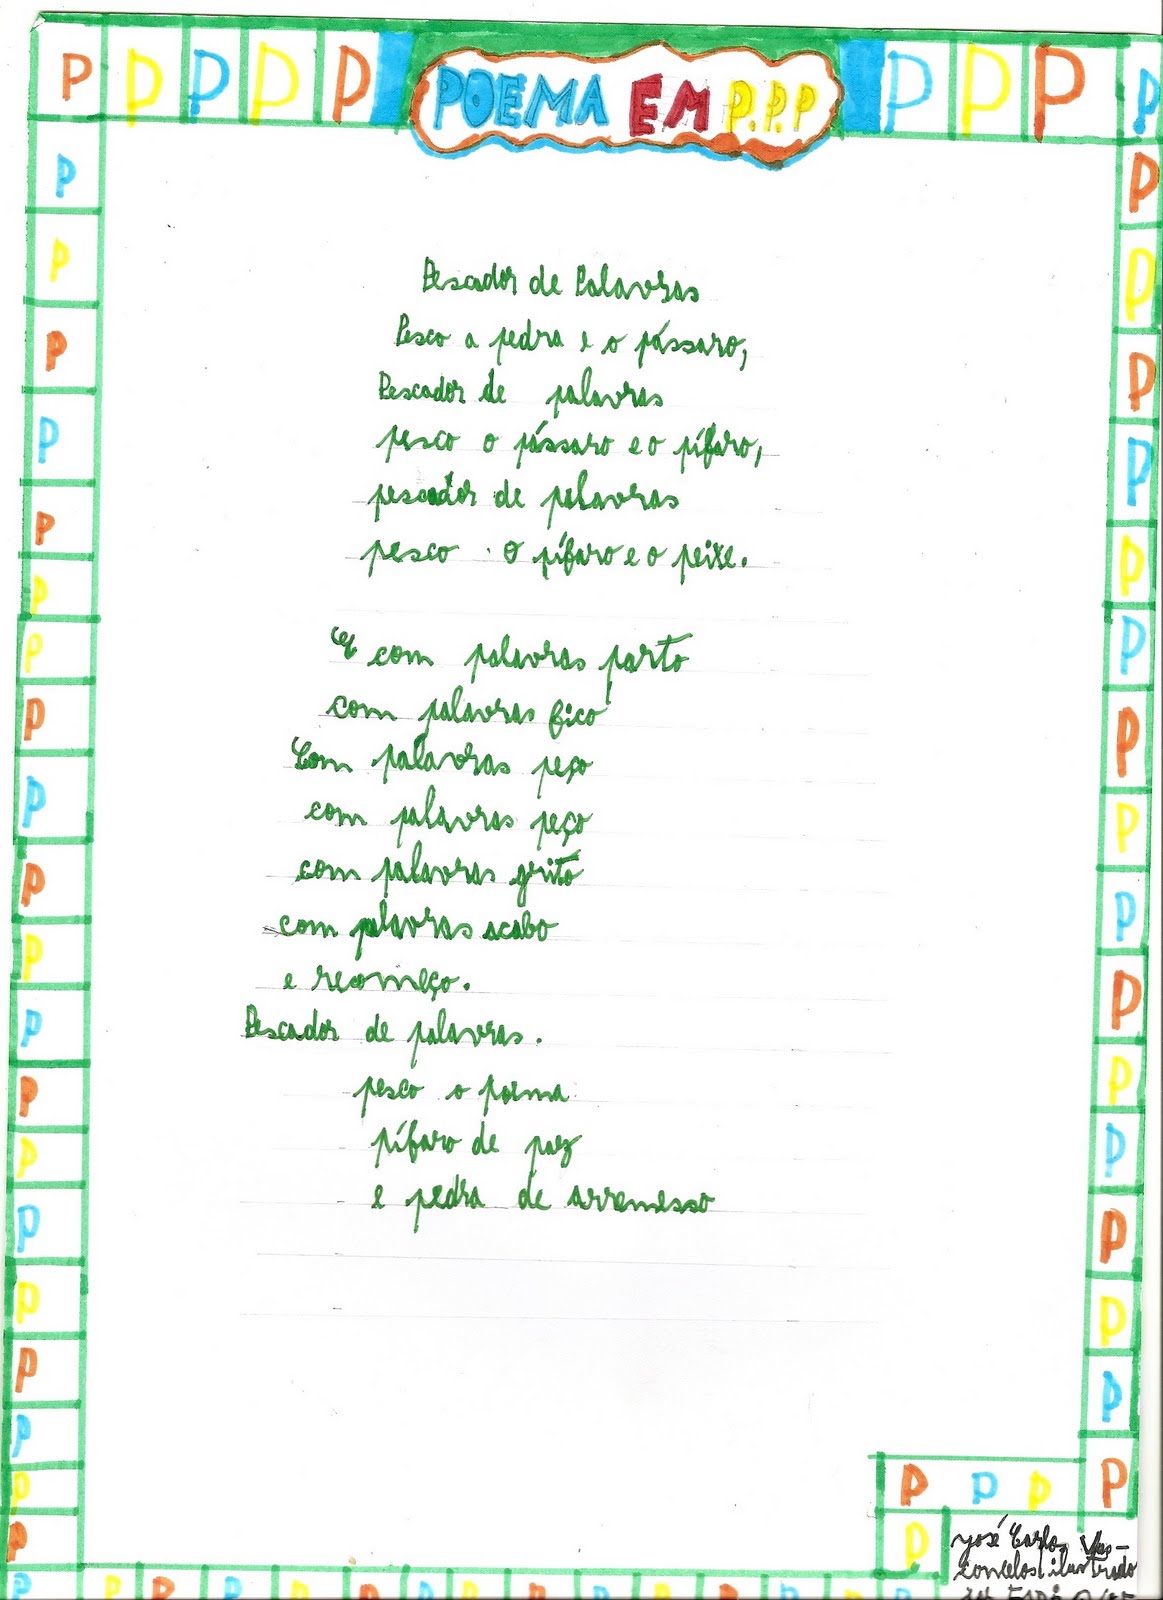 P P P P P POEMA EM P.P.P P P P P
Pescador de Palavras
Pesco a pedra e o pássaro,
Pescador de palavras
pesco o pássaro e o pífaro,
pescador de palavras
pesco o pífaro e o peixe.
E com palavras parto
com palavras fico
Com palavras peço
com palavras peço
com palavras grito
com palavras acabo
e recomeço.
Pescador de palavras.
pesco o poema
pífaro de paz
e pedra de arremesso
P P P P
P
José Carlos Vas-
concelos ilustrado